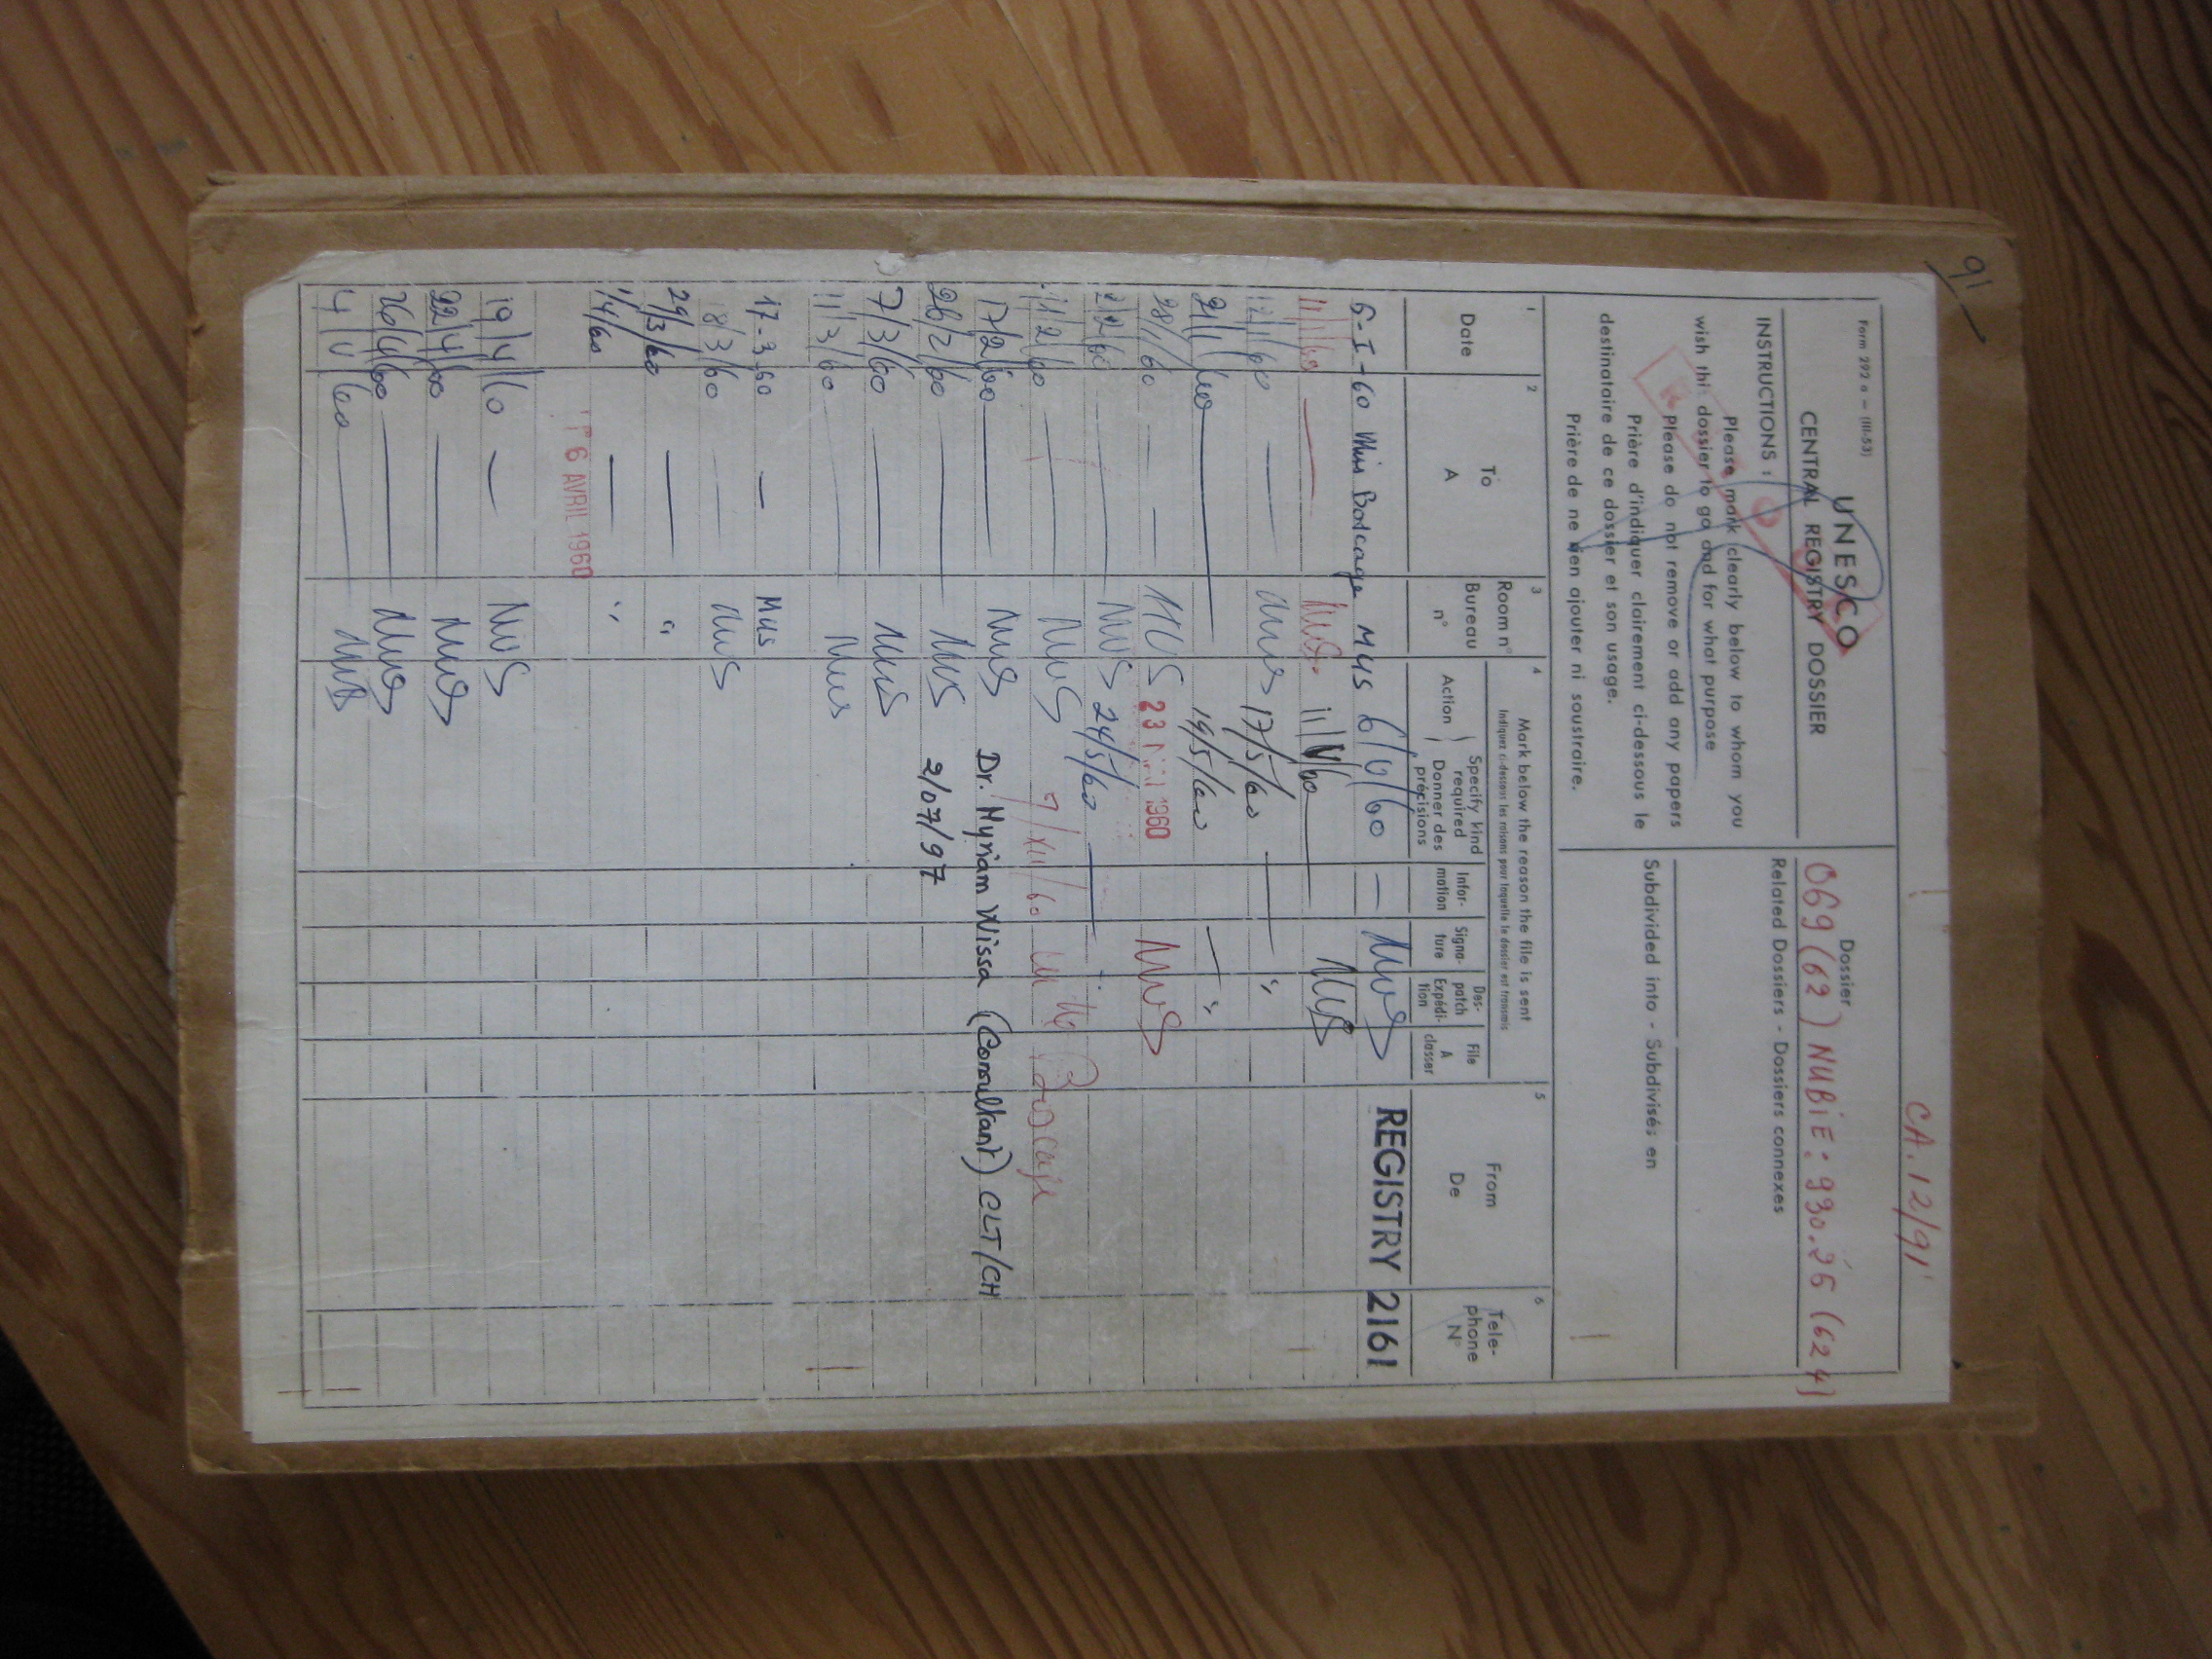 91
CA.12/91
Form 292 a — (III-53)
UNESCO
CENTRAL REGISTRY DOSSIER
Dossier
069 (62) NUBIE : 930.26 (624)
INSTRUCTIONS :
Please mark clearly below to whom you
wish this dossier to go and for what purpose
Please do not remove or add any papers
Prière d'indiquer clairement ci-dessous le
destinataire de ce dossier et son usage.
Prière de ne rien ajouter ni soustraire.
Related Dossiers - Dossiers connexes
Subdivided into - Subdivisé; en
1
Date
2
To
A
3
Room n°
Bureau
n°
4
Mark below the reason the file is sent
Indiquez ci-dessous les raisons pour laquelle le dossier est transmis
Action
Specify kind
required
Donner des
précisions
Infor-
mation
Signa-
ture
Des-
patch
Expédi-
tion
File
A
classer
5
From
De
6
Tele-
phone
N°
6-I-60 Miss Boscage MUS 6/V/60 — MUS REGISTRY 2161
11/1/60 — MUS 11/V/60 — MUS
12/1/60 — MUS 17/5/60 — "
21/1/60 — 19/5/60 — "
28/1/60 — MUS 23 MAI 1960 MUS
2/2/60 — MUS 24/5/60 —
11/2/60 — MUS 7/XII/60 Boscage
17/2/60 — MUS Dr. Myriam Wissa (Consultant) CLT/CH
26/2/60 — MUS 2/07/97
7/3/60 — MUS
11/3/60 — MUS
17-3-60 — MUS
18/3/60 — MUS
29/3/60 — "
1/4/60 — "
6 AVRIL 1960
19/4/60 — MUS
22/4/60 — MUS
26/4/60 — MUS
4/V/60 — MUS